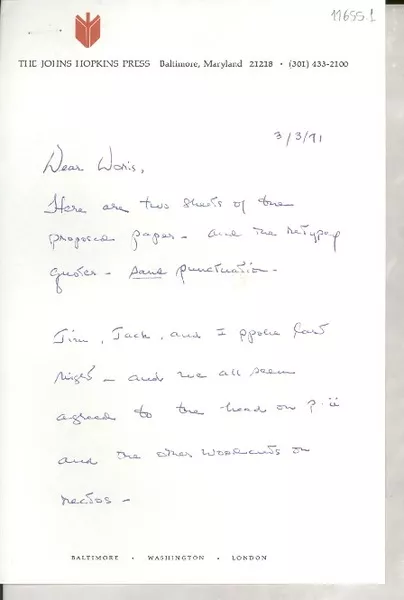 11655.1
THE JOHNS HOPKINS PRESS Baltimore, Maryland 21218 • (301) 433-2100
3/3/71
Dear Doris,
Here are two sheets of the
proposed paper - and the retyped
quotes - Sans punctuation -
Jim, Jack, and I spoke last
night - and we all seem
agreed to the head on p. ii
and the other woodcuts on
rectos -
BALTIMORE • WASHINGTON • LONDON